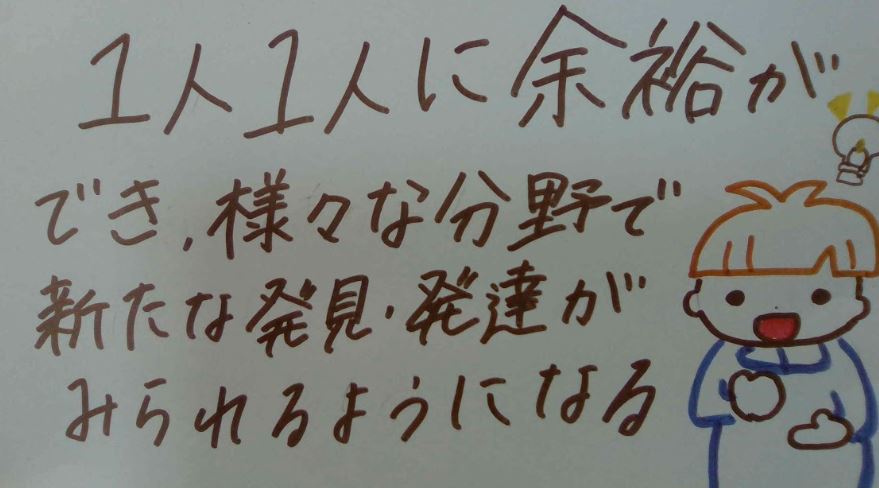 1人1人に余裕が
でき、様々な分野で
新たな発見・発達が
みられるようになる